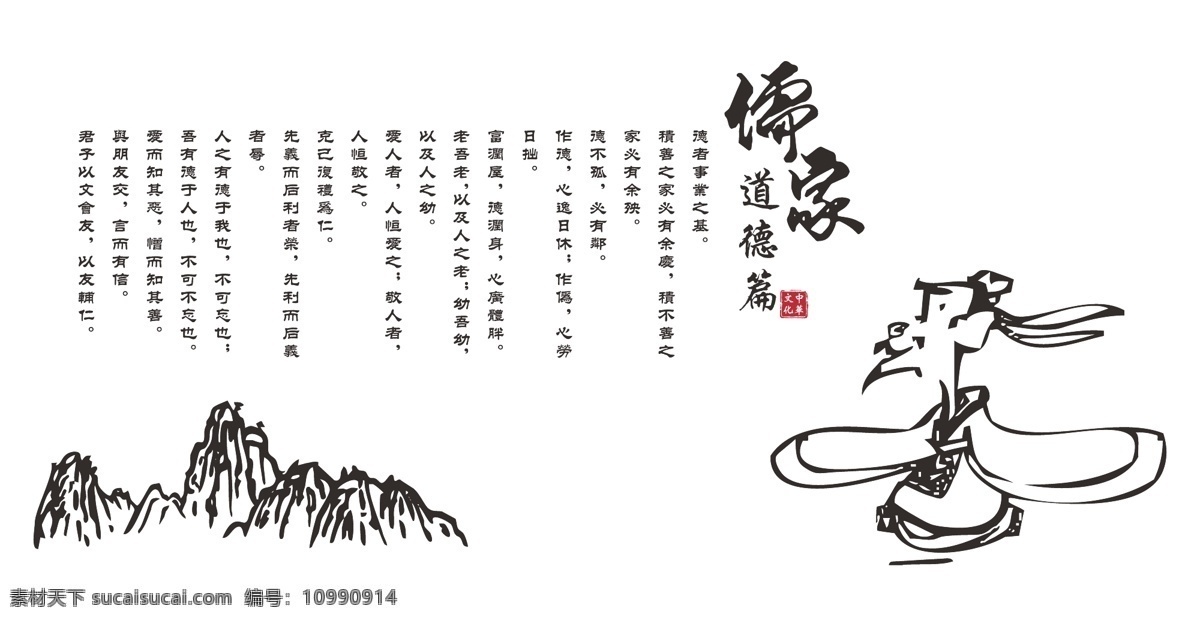 儒家
道德篇
中華
文化
德者事業之基。
積善之家必有余慶，積不善之
家必有余殃。
德不孤，必有鄰。
作德，心逸日休；作僞，心勞
日拙。
富潤屋，德潤身，心廣體胖。
老吾老，以及人之老；幼吾幼，
以及人之幼。
愛人者，人恒愛之；敬人者，
人恒敬之。
克己復禮爲仁。
先義而后利者榮，先利而后義
者辱。
人之有德于我也，不可忘也；
吾有德于人也，不可不忘也。
愛而知其惡，憎而知其善。
與朋友交，言而有信。
君子以文會友，以友輔仁。
素材天下 sucaisucai.com 编号：10990914